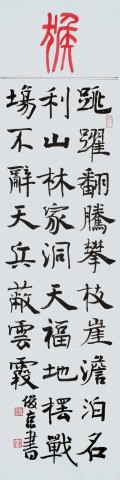 猴
跳躍翻騰攀枝崖澹泊名
利山林家洞天福地擺戰
塲不辭天兵蔽雲霞
書